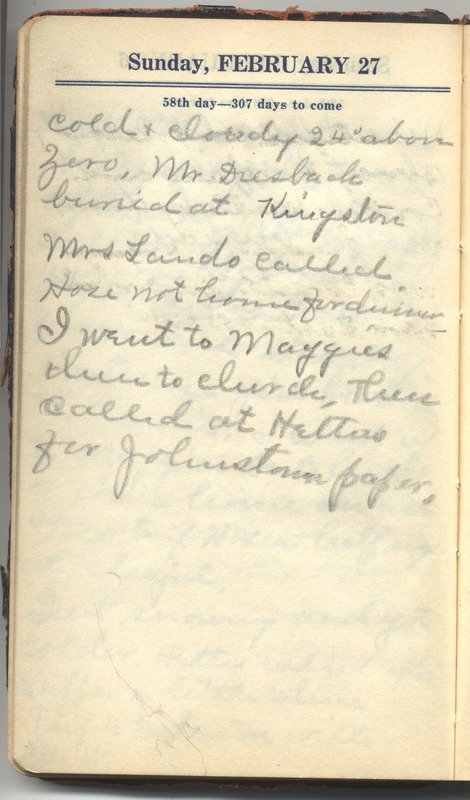 Sunday, FEBRUARY 27
58th day—307 days to come
cold & cloudy 24° above
Zero, Mr Diesbach
buried at Kingston
Mrs Lando called
not home for dinner
I went to Maggies
then to church, then
called at Hettas
for Johnstown paper,